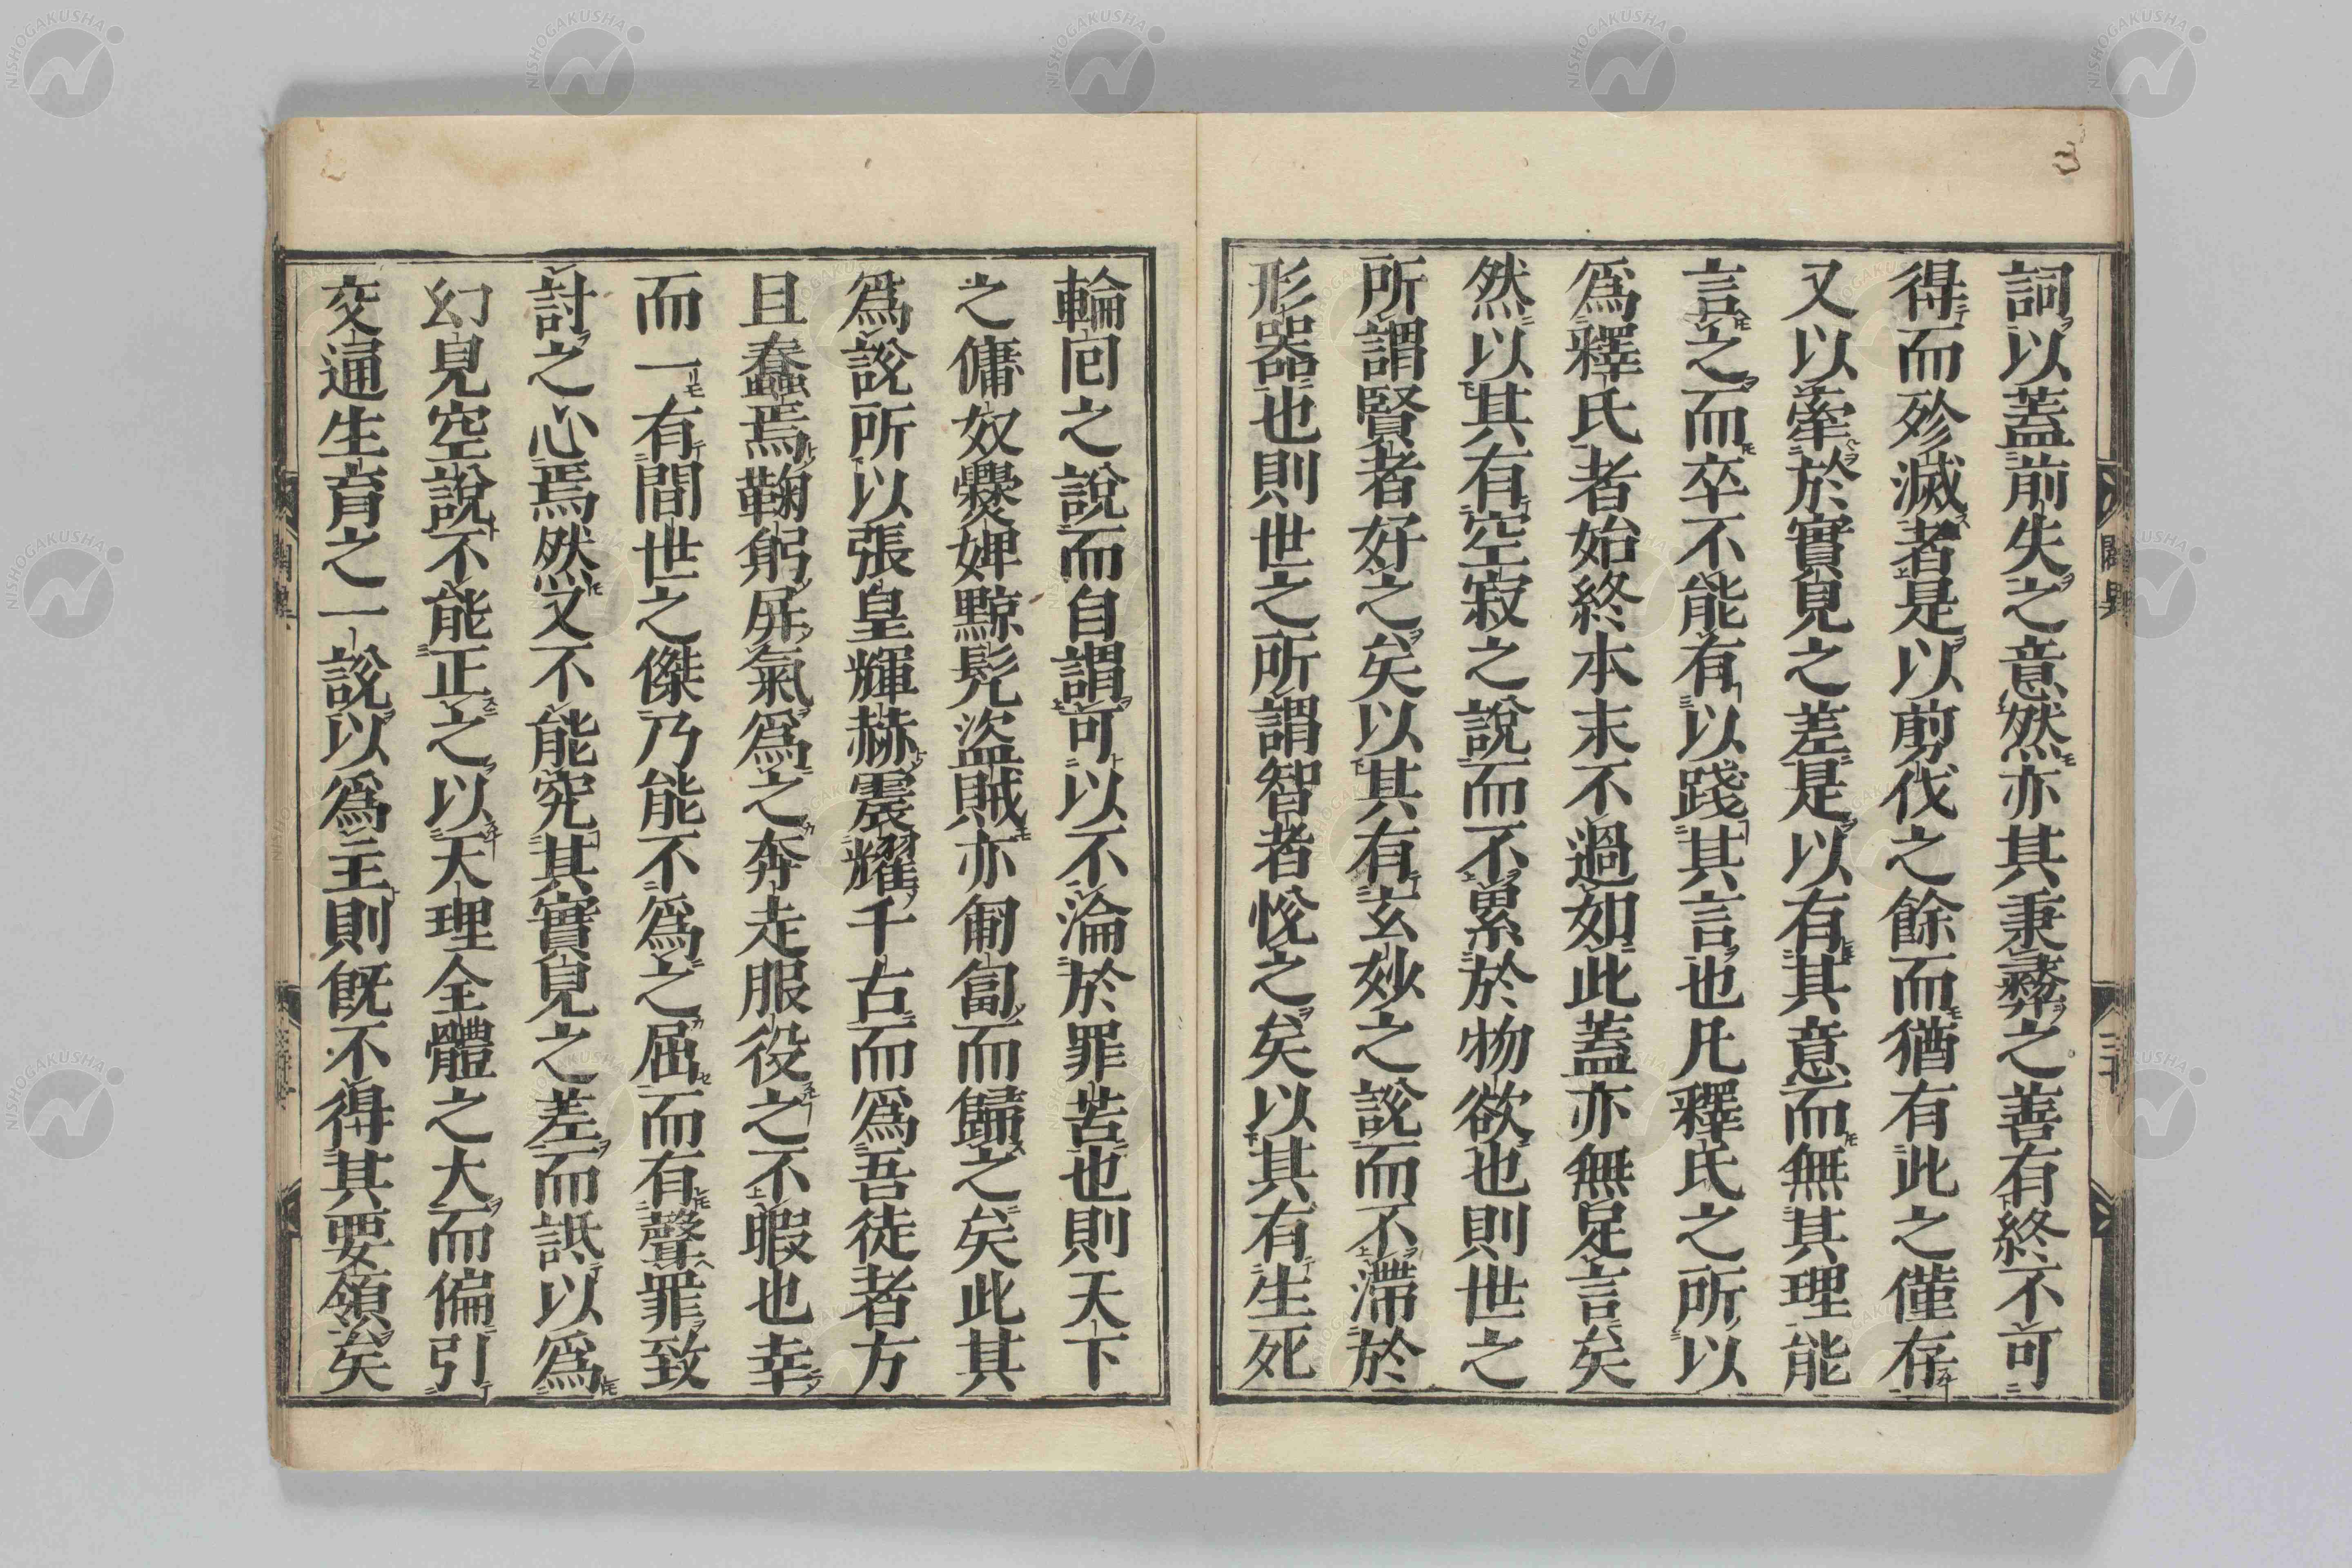 詞以蓋前失之意然亦其秉彛之善有終不可
得而殄滅者是以剪伐之餘而猶有此之僅存
又以牽於實見之差是以有其意而無其理能
言之而卒不能有以踐其言也凡釋氏之所以
爲釋氏者始終本末不過如此蓋亦無足言矣
然以其有空寂之說而不累於物欲也則世之
所謂賢者好之矣以其有玄妙之說而不滯於
形器也則世之所謂智者悅之矣以其有生死
輪囘之說而自謂可以不淪於罪苦也則天下
之傭奴爨婢黥髠盜賊亦匍匐而歸之矣此其
爲說所以張皇輝赫震耀千古而爲吾徒者方
且蠢焉鞠躬屏氣爲之奔走服役之不暇也幸
而一有間世之傑乃能不爲之屈而有聲罪致
討之心焉然又不能究其實見之差而詆以爲
幻見空說不能正之以天理全體之大而偏引
交通生育之一說以爲主則旣不得其要領矣
NISHOGAKUSHA